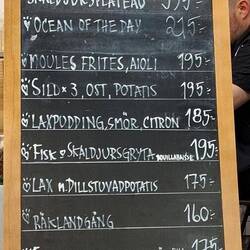 SKALDJURSPLATEAU 395-
OCEAN OF THE DAY 215-
MOULES FRITES, AIOLI 195-
SILD × 3, OST, POTATIS 195-
LAXPUDDING, SMÖR, CITRON 185-
FISK o SKALDJURSGRYTA BOUILLABAISSE 195-
LAX m. DILLSTUVADPOTATIS 175-
RÄKLANDGÅNG 160-
175-